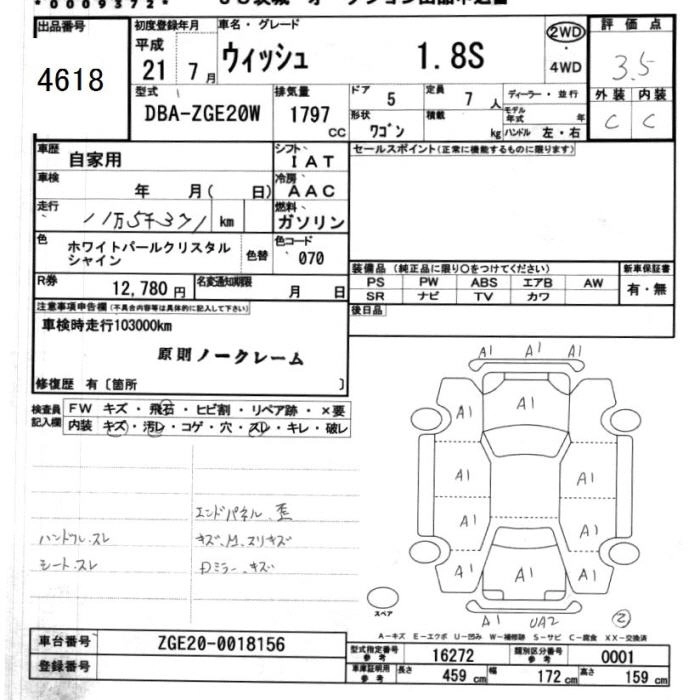 *0009372*
出品番号
4618
初度登録年月
平成
21 7月
車名・グレード
ウィッシュ 1.8S
2WD
・
4WD
評価点
3.5
外装 内装
C C
型式
DBA-ZGE20W
排気量
1797
CC
ドア
5
定員
7人
形状
ワゴン
積載
kg
ディーラー・並行
モデル年式 年
ハンドル 左・右
車歴
自家用
シフト
IAT
車検
年 月( 日)
冷房
AAC
走行
11万5千371 km
燃料
ガソリン
色
ホワイトパールクリスタル
シャイン
色替
色コード
070
セールスポイント(正常に機能するものに限ります)
R券
12,780円
名変通知期限
月 日
装備品 (純正品に限り○をつけてください)
PS PW ABS エアB AW
SR ナビ TV カワ
新車保証書
有・無
後日品
注意事項申告欄(不具合内容等は具体的に記入して下さい)
車検時走行103000km
原則ノークレーム
修復歴 有〔箇所 〕
検査員
記入欄
FW キズ・飛石・ヒビ割・リペア跡・×要
内装 キズ・汚レ・コゲ・穴・スレ・キレ・破レ
エンドパネル 歪
ハンドル.スレ
キズ、スリキズ
シート.スレ
Dミラー.キズ
A1 A1 A1
A1 A1 A1
A1 A1
A1 A1
A1 A1 A1
A1 UA2 ②
スペア
A-キズ E-エクボ U-凹み W-補修跡 S-サビ C-腐食 XX-交換済
車台番号
ZGE20-0018156
登録番号
型式指定番号
参考
16272
類別区分番号
参考
0001
車庫証明用
参考
長さ 459 cm
幅 172 cm
高さ 159 cm